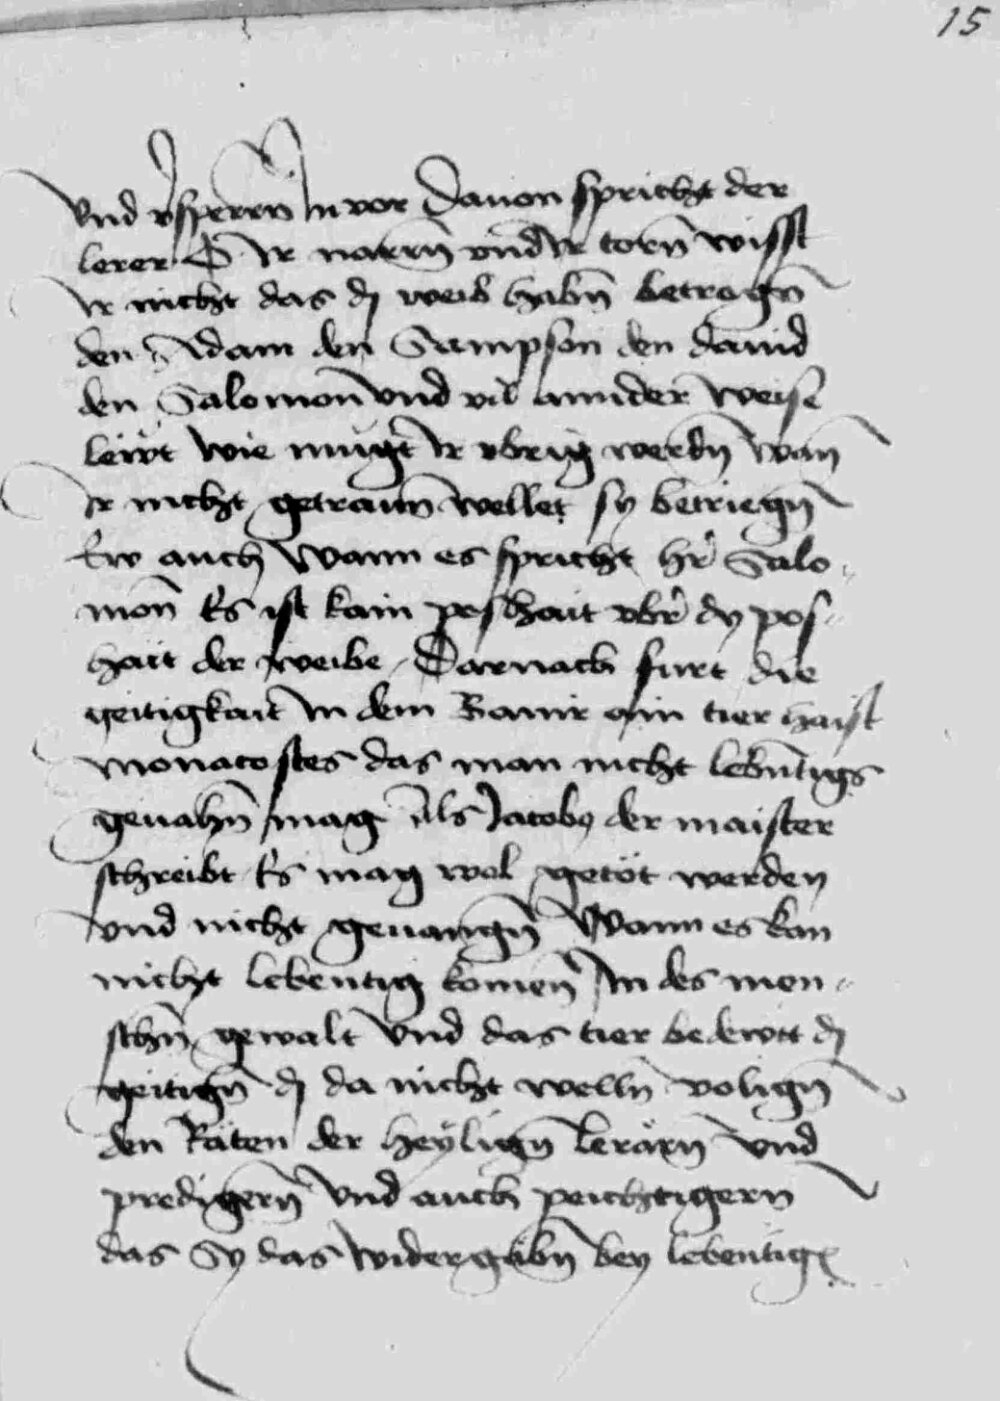 15
Vnd v̾sperrn̄ in vor Dauon spricht der
lerer O Ir narrn̄ vnd Ir torn̄ wisst
Ir nicht das dy weib habn̄ betrogn̄
den Adam den Sampson den dauid
den Salomon̄ vnd vil annder weise
lewt wie mugt Ir vbrig werdn̄ wan̄
Ir nicht getrawn̄ wellet sy betriegn̄
Ew auch Wann es spricht hr̄ Salo-
mon̄ Es ist kain poshait vbr̄ dy pos-
hait der weibe Darnach furt die
geitigkait in dem Banir ain tier haist
monacostes das man nicht lebn̄tigs
geuahn̄ mag Als Jacobus der maister
schreibt Es mag wol getöt werden
vnd nicht geuangn̄ Wann es kan
nicht lebentig komen̄ In des men-
schn̄ gewalt Vnd das tier bedewtt dy
geitign̄ dy da nicht welln̄ volign̄
den Räten der heylign̄ lerärn̄ Vnd
predigern̄ Vnd auch peichtigern
das Sy das widergäbn̄ bey lebentigē